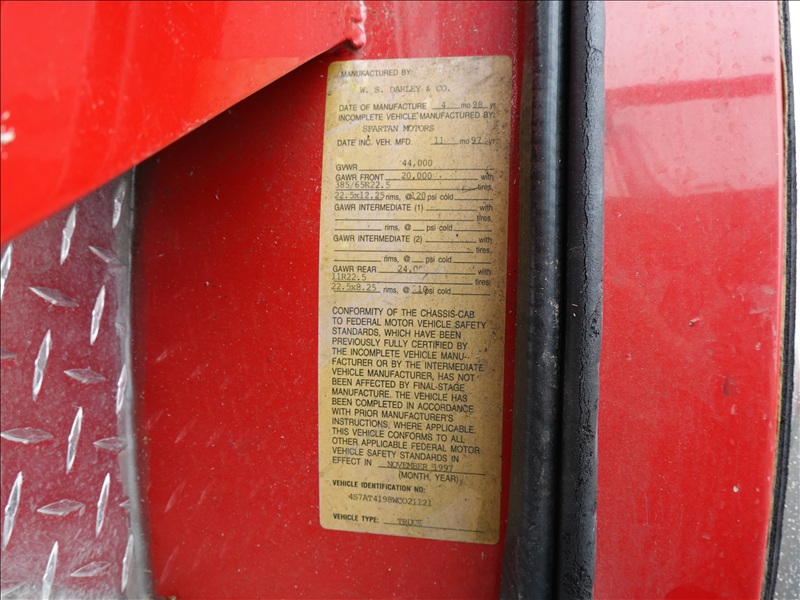 MANUFACTURED BY
W. S. DARLEY & CO.
DATE OF MANUFACTURE 4 mo 98 yr
INCOMPLETE VEHICLE MANUFACTURED BY:
SPARTAN MOTORS
DATE INC. VEH. MFD. 11 mo 97 yr
GVWR 44,000
GAWR FRONT 20,000 with
385/65R22.5 tires,
22.5x12.25 rims, @ 120 psi cold
GAWR INTERMEDIATE (1) - with
tires,
rims, @ psi cold
GAWR INTERMEDIATE (2) - with
tires,
rims, @ psi cold
GAWR REAR with
11R22.5 tires
22.5x8.25 rims, @ psi cold
CONFORMITY OF THE CHASSIS-CAB
TO FEDERAL MOTOR VEHICLE SAFETY
STANDARDS, WHICH HAVE BEEN
PREVIOUSLY FULLY CERTIFIED BY
THE INCOMPLETE VEHICLE MANU-
FACTURER OR BY THE INTERMEDIATE
VEHICLE MANUFACTURER, HAS NOT
BEEN AFFECTED BY FINAL-STAGE
MANUFACTURE. THE VEHICLE HAS
BEEN COMPLETED IN ACCORDANCE
WITH PRIOR MANUFACTURER'S
INSTRUCTIONS, WHERE APPLICABLE.
THIS VEHICLE CONFORMS TO ALL
OTHER APPLICABLE FEDERAL MOTOR
VEHICLE SAFETY STANDARDS IN
EFFECT IN NOVEMBER 1997
(MONTH, YEAR)
VEHICLE IDENTIFICATION NO:
4S7AT4198WC021121
VEHICLE TYPE: TRUCK